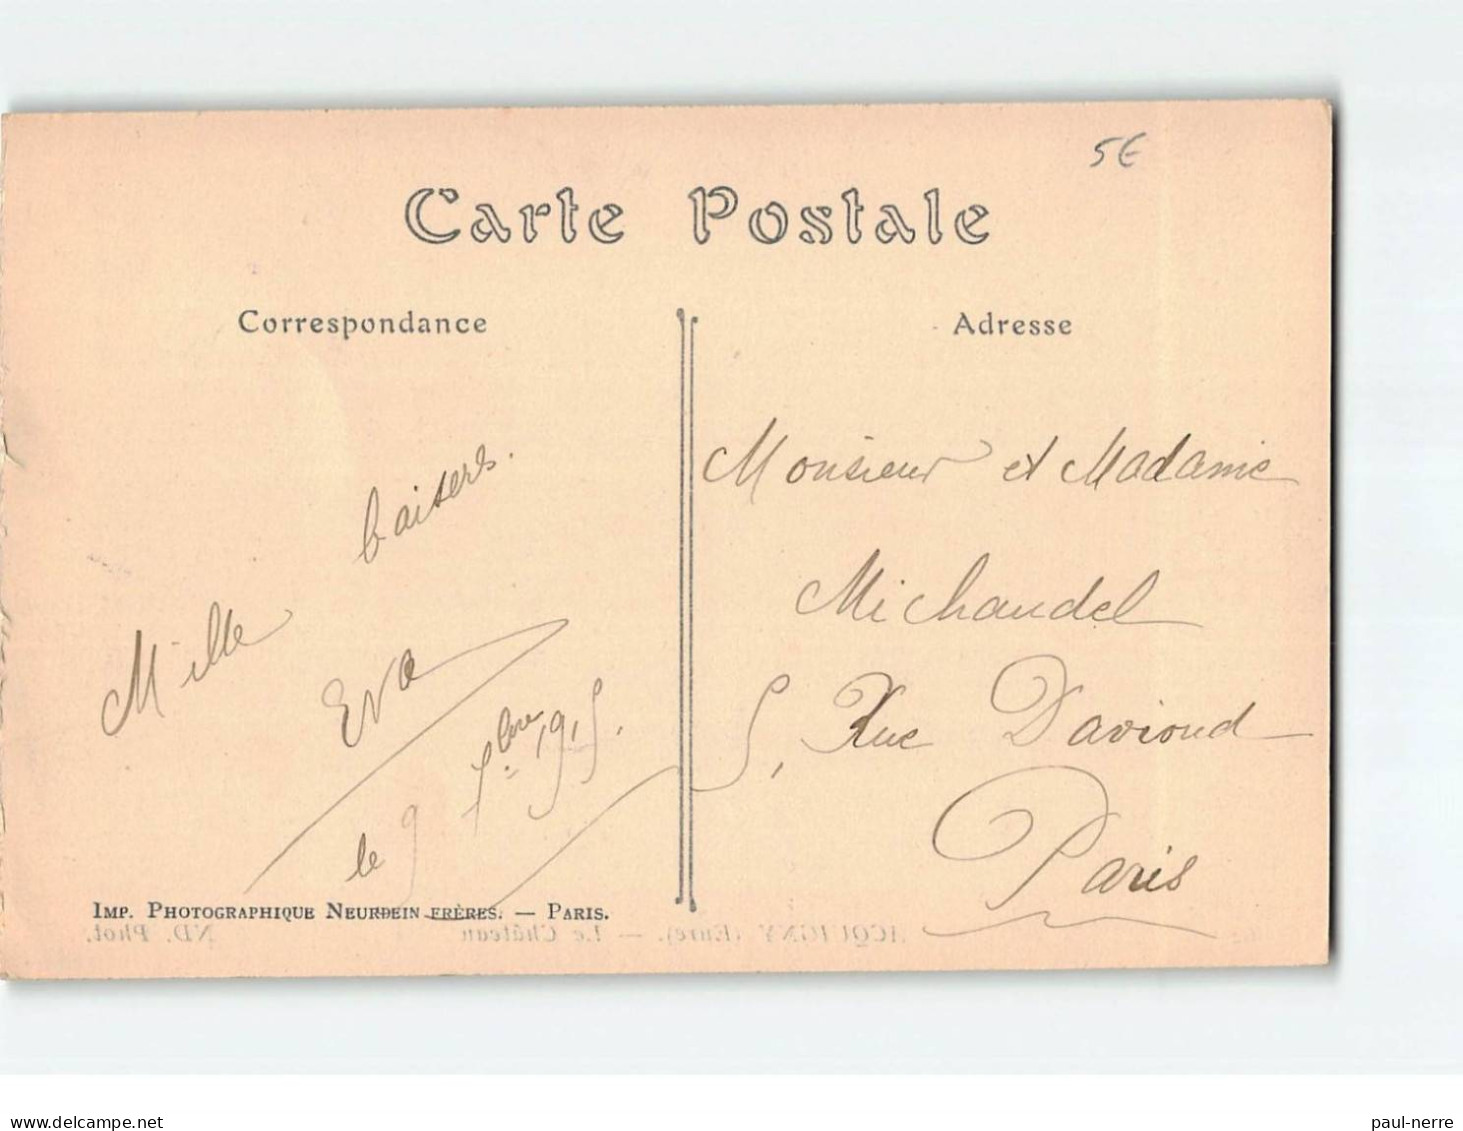 5€
Carte Postale
Correspondance
Adresse
Mille baisers.
Eva
le 9 9bre 1915.
Monsieur et Madame
Michaudel
5, Rue Davioud
Paris
IMP. PHOTOGRAPHIQUE NEURDEIN FRÈRES. — PARIS.
ACQUIGNY (Eure). — Le Château
ND. Phot.
paul-nerre